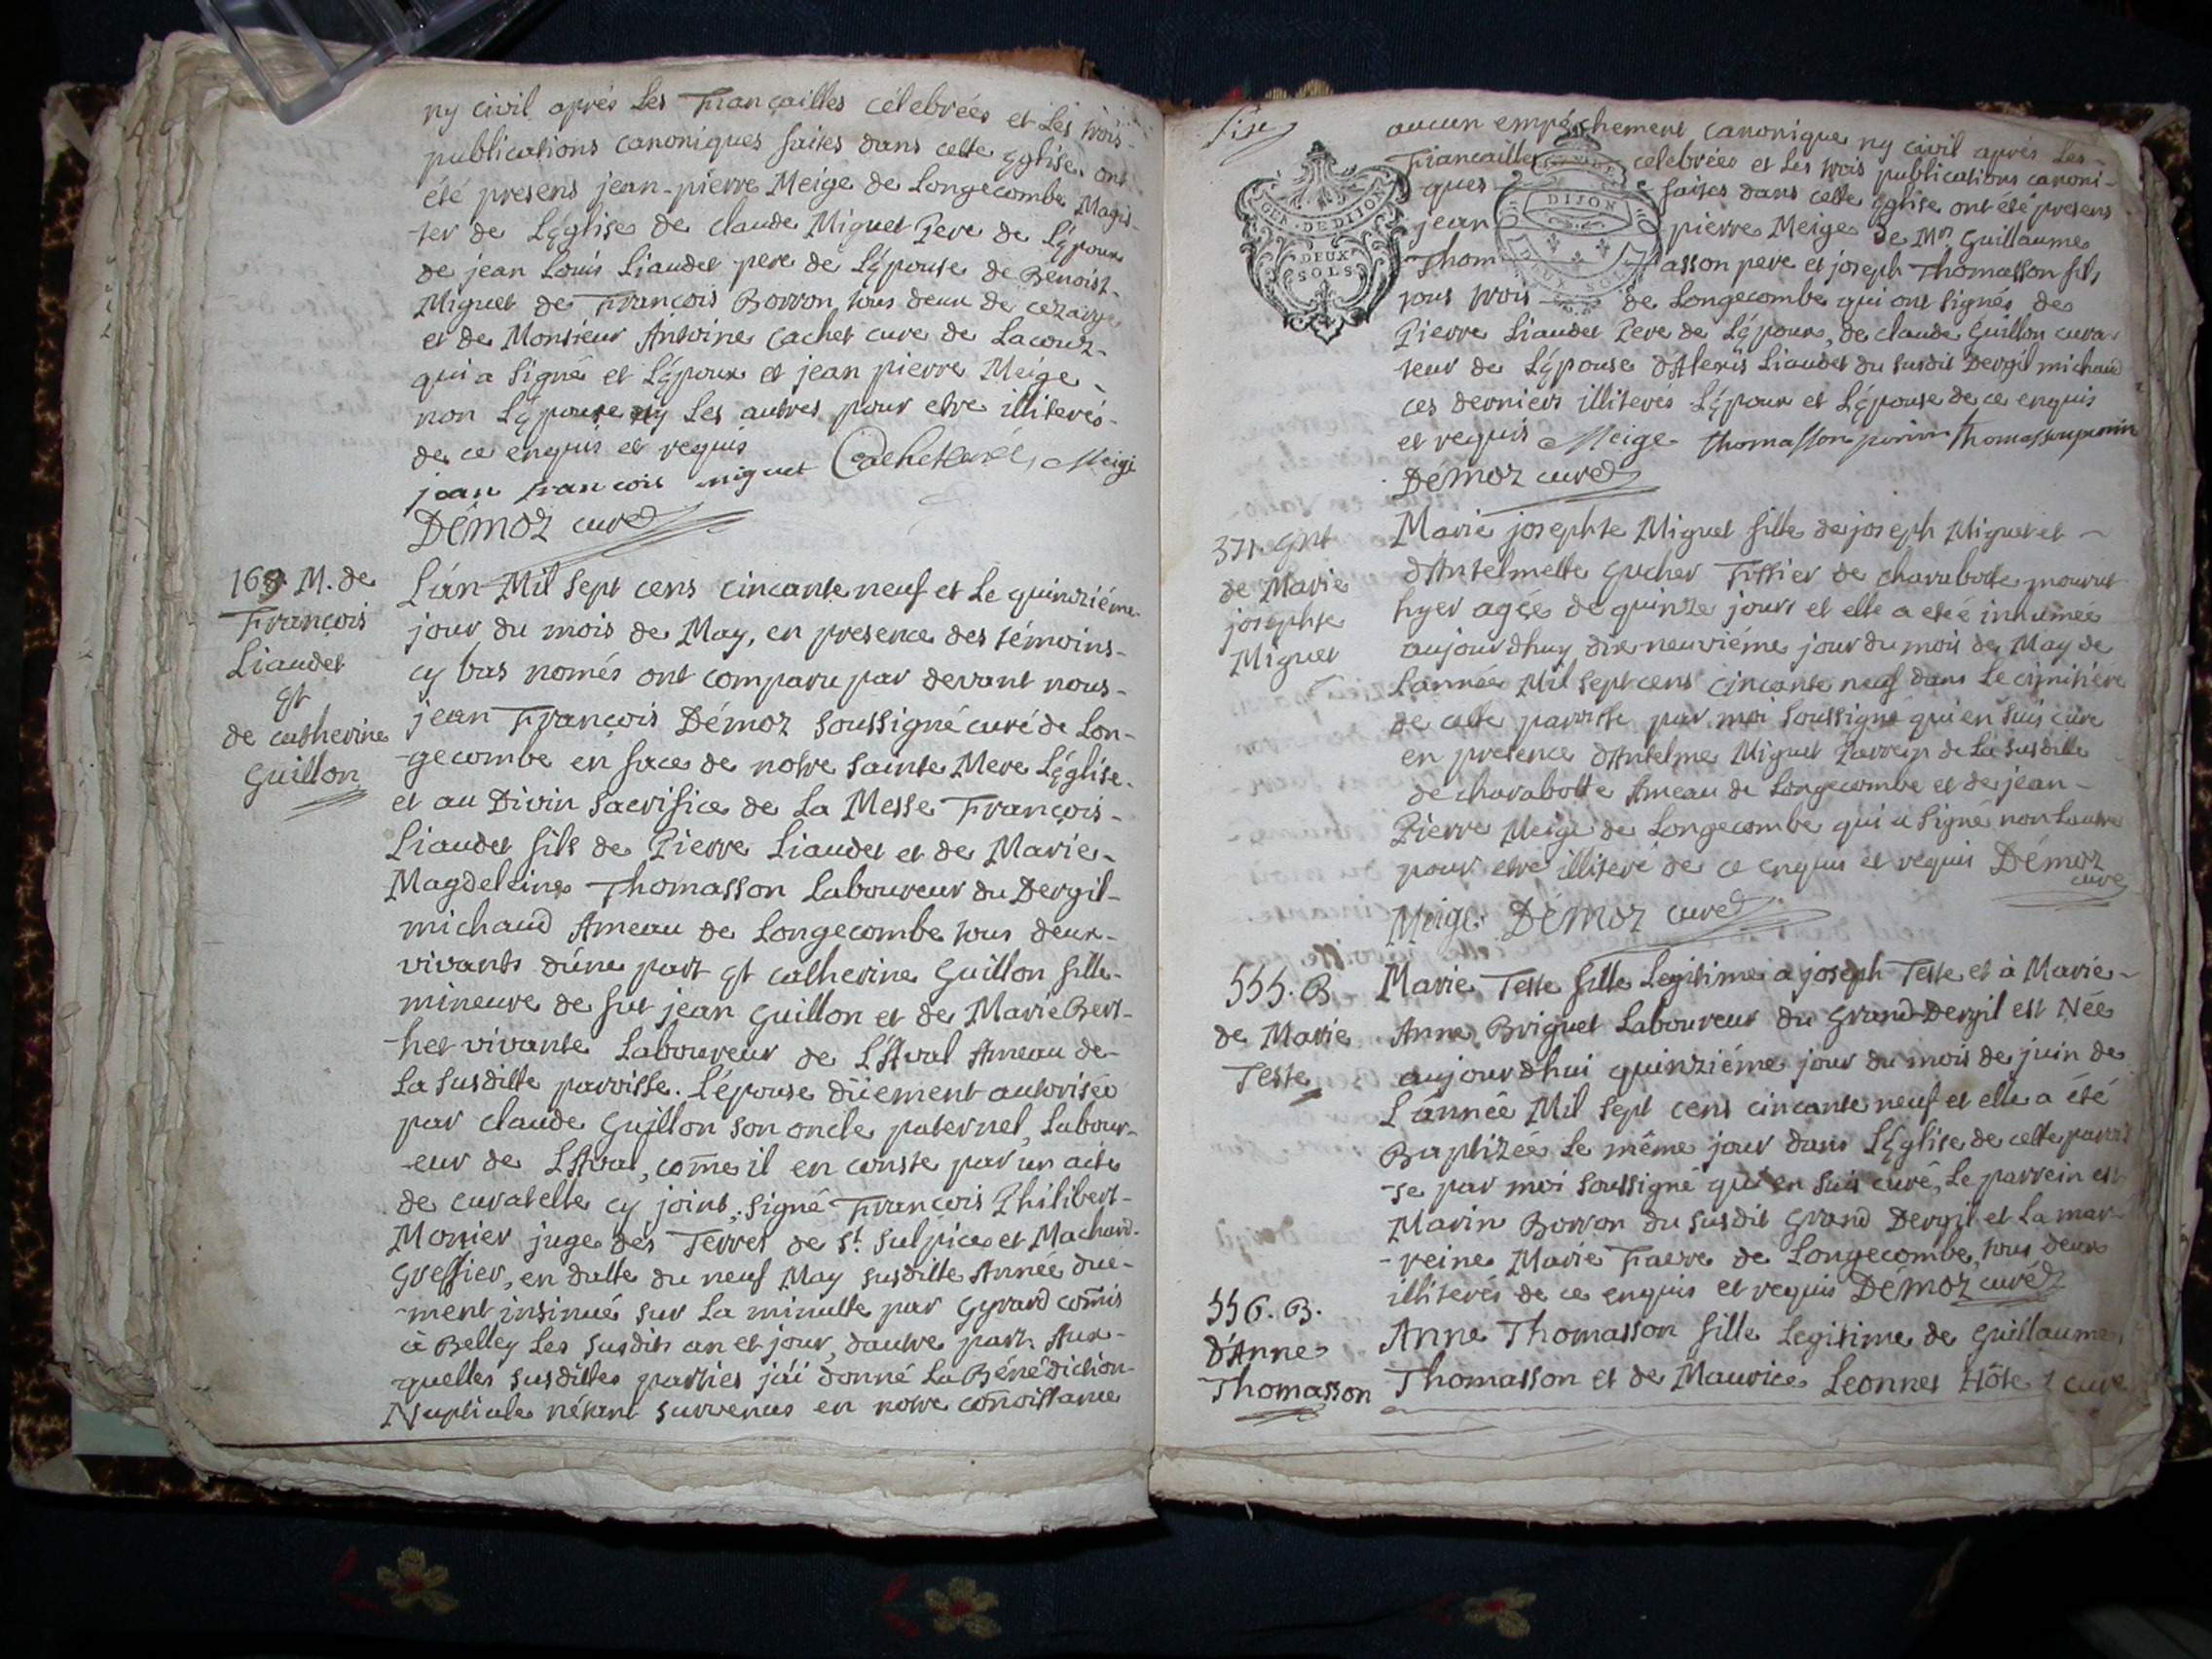 ny civil aprés Les Fiançailles célebrées et Les trois
publications canoniques faites dans cette Eglise, ont
été presens jean-pierre Meige de Longecombe Magis-
ter de L'Eglise de claude Miguet Pere de L'Epoux
de jean Louis Liaudet pere de L'Epouse de Benoist
Miguet de François Borron tous deux de
et de Monsieur Antoine Cachet cure de Lacoux
qui a signé et L'Epoux et jean pierre Meige
non L'Epouse ny Les autres pour etre illiterés
de ce enquis et requis
jean francois miguet Cachet curé, Meige
Démoz curé
168 M. de
François
Liaudet
Et
de catherine
Guillon
L'án Mil sept cens cincante neuf et Le quinziéme
jour du mois de May, en presence des témoins
cy bas només ont comparu par devant nous
jean François Démoz soussigné curé de Lon-
gecombe en face de notre sainte Mere L'Eglise
et au Divin sacrifice de La Messe François
Liaudet fils de Pierre Liaudet et de Marie
Magdeleine Thomasson Laboureur du Dergil-
michaud Ameau de Longecombe tous deux
vivants dúne part Et catherine Guillon fille
mineure de fut jean Guillon et de Marie Bert-
het vivante Laboureur de L'Aval Ameau de
La susditte parroisse. L'épouse düement autorisée
par claude Guillon son oncle paternel, Labour-
eur de L'Aval, come il en conste par un acte
de curatelle cy joint, signé François Philibert
Monier juge des Terres de St. Sulpice et Machard
Greffier, en datte du neuf May susditte Année due-
ment insinué sur La minutte par Gyrard comis
à Belley Les susdits an et jour, dautre part. Aux-
quelles susdittes parties jái donné La Bénédiction
Nuptiale nétant survenus en notre conoissance
aucun empéchement canonique ny civil aprés Les
Fiancailles celebrées et Les trois publications canoni-
ques faites dans cette Eglise ont été presens
jean pierre Meige de Mr. Guillaume
Thomasson pere et joseph Thomasson fils
tous trois de Longecombe qui ont signés de
Pierre Liaudet Pere de L'Epoux, de claude Guillon cura-
teur de L'Epouse d'Alexis Liaudet du susdit Dergil michaud
ces derniers illiteres L'Epoux et L'Epouse de ce enquis
et requis Meige thomasson thomasson
Démoz curé
GEN. DE DIJON
DEUX
SOLS
DIJON
DEUX SOLS
371. Ent
de Marie
josephte
Miguet
Marie josephte Miguet fille de joseph Miguet et
d'Antelmette Gucher Fittier de charabotte mourut
hyer agée de quinze jours et elle a eté inhumée
aujourdhuy dix neuviéme jour du mois de May de
Lannée Mil sept cens cincante neuf dans Le cimitiére
de cette parroisse par moi soussigné qui en suis cure
en presence d'Antelme Miguet Parrein de La susditte
de charabotte Ameau de Longecombe et de jean
Pierre Meige de Longecombe qui a signé non Lautre
pour etre illiteré de ce enquis et requis Démoz
cure
Meige Démoz curé
555. B
de Marie
Teste
Marie Teste fille Legitime a joseph Teste et à Marie
Anne Briguet Laboureur du Grand-Dergil est Née
aujourdhui quinziéme jour du mois de juin de
L'ánnée Mil sept cens cincante neuf et elle a été
Baptizée Le même jour dans L'Eglise de cette parrois
se par moi soussigné qui en suis curé, Le parrein est
Marin Borron du susdit Grand Dergil et La mar-
reine Marie Faevre de Longecombe, tous deux
illiterés de ce enquis et requis Démoz curé
556. B.
d'Anne
Thomasson
Anne Thomasson fille Legitime de Guillaume
Thomasson et de Maurice Leonnet Hôte